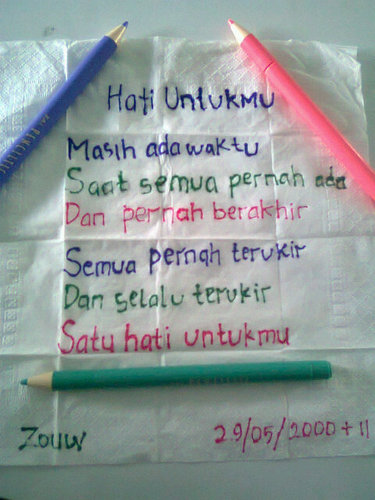 Hati Untukmu
Masih ada waktu
Saat semua pernah ada
Dan pernah berakhir
Semua pernah terukir
Dan selalu terukir
Satu hati untukmu
Zouw
29/05/2000+11